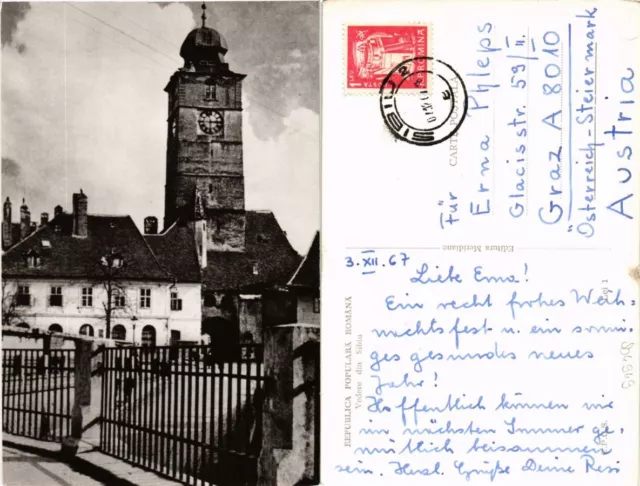 1 LEU
POSTA
ROMINA
SIBIU
2
CARTE POSTALĂ
Für
Erna Phleps
Glacisstr. 59/II.
Graz A 8010
Österreich-Steiermark
Austria
Editura Meridiane
REPUBLICA POPULARĂ ROMÂNĂ
Vedere din Sibiu
3. XII. 67
Liebe Erna!
Ein recht frohes Weih-
nachtsfest u. ein sonni-
ges gesundes neues
Jahr!
Hoffentlich können wir
im nächsten Sommer ge-
mütlich beisammen
sein. Herzl. Grüße Deine Resi
Lei 1